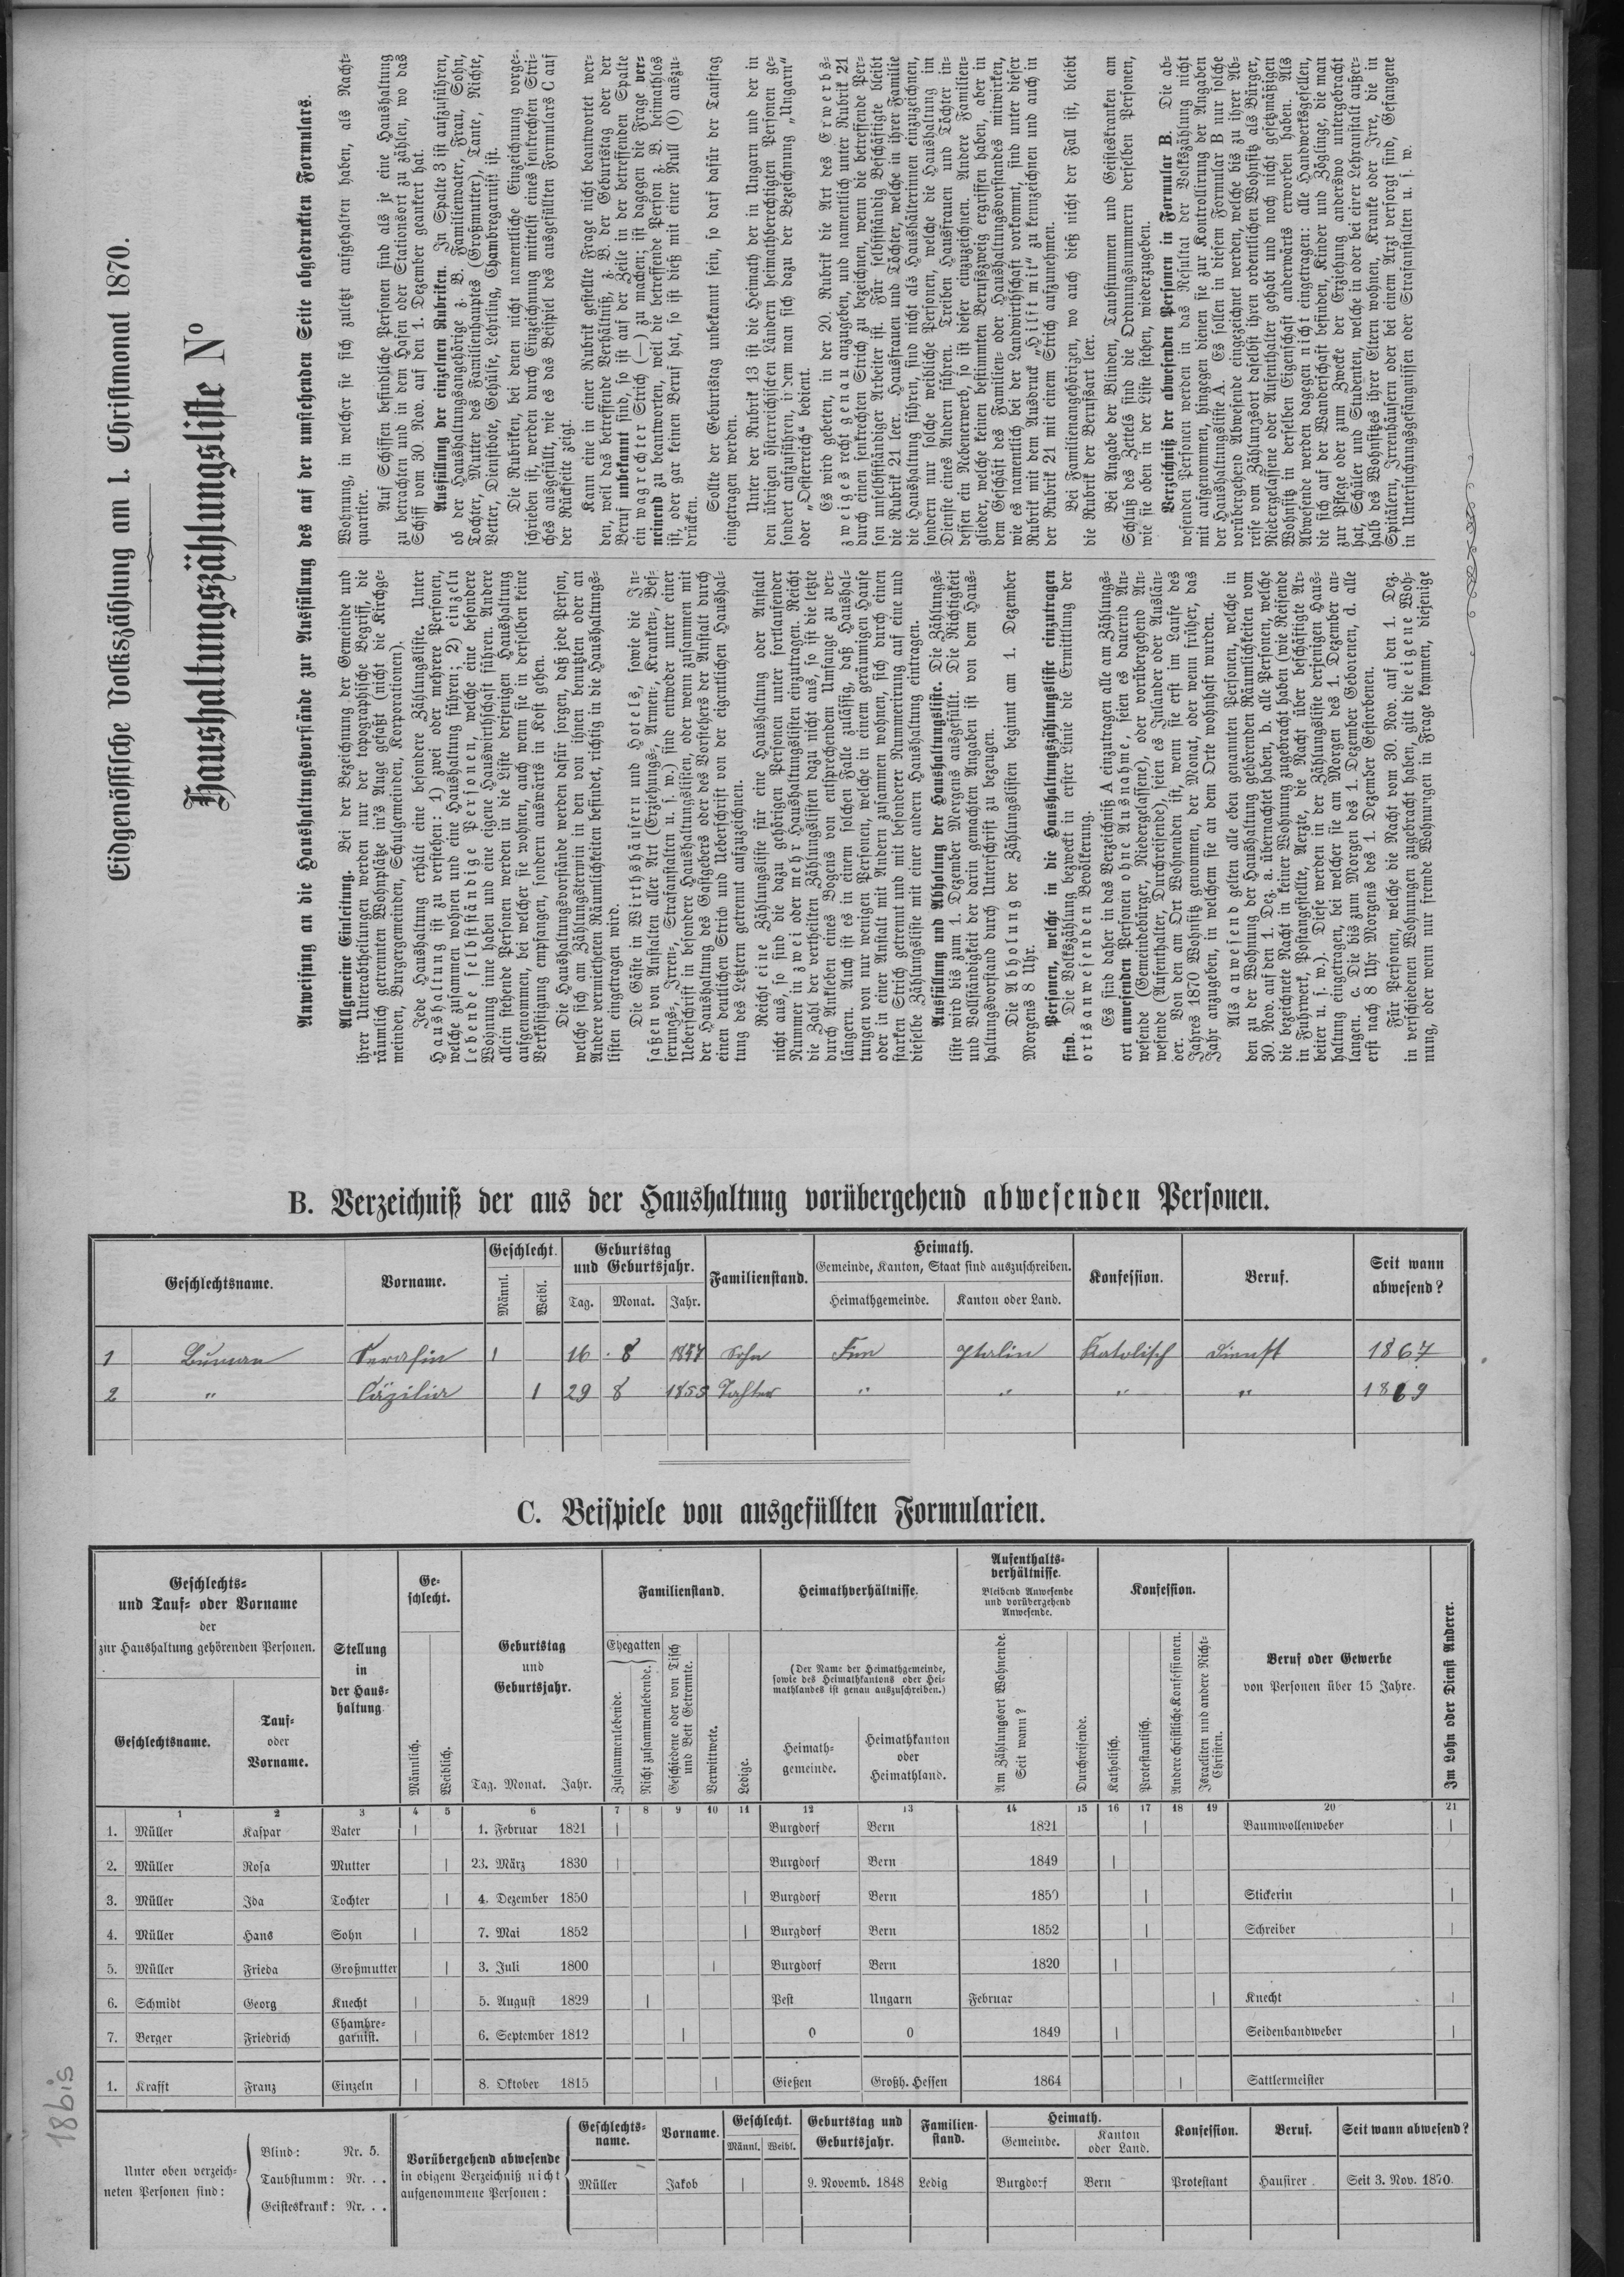 Eidgenössische Volkszählung am 1. Christmonat 1870.
Haushaltungszählungsliste No
Anweisung an die Haushaltungsvorstände zur Ausfüllung des auf der umstehenden Seite abgedruckten Formulars.
Allgemeine Einleitung. Bei der Bezeichnung der Gemeinde und
ihrer Unterabtheilungen werden nur der topographische Begriff, die
räumlich getrennten Wohnplätze in's Auge gefaßt (nicht die Kirchge-
meinden, Burgergemeinden, Schulgemeinden, Korporationen).
Jede Haushaltung erhält eine besondere Zählungsliste. Unter
Haushaltung ist zu verstehen: 1) zwei oder mehrere Personen,
welche zusammen wohnen und eine Haushaltung führen; 2) einzeln
lebende selbstständige Personen, welche eine besondere
Wohnung inne haben und eine eigene Hauswirthschaft führen. Andere
allein stehende Personen werden in die Liste derjenigen Haushaltung
aufgenommen, bei welcher sie wohnen, auch wenn sie in derselben keine
Verköstigung empfangen, sondern auswärts in Kost gehen.
Die Haushaltungsvorstände werden dafür sorgen, daß jede Person,
welche sich am Zählungstermin in den von ihnen benutzten oder an
Andere vermietheten Räumlichkeiten befindet, richtig in die Haushaltungs-
listen eingetragen wird.
Die Gäste in Wirthshäusern und Hotels, sowie die In-
saßen von Anstalten aller Art (Erziehungs-, Armen-, Kranken-, Bes-
serungs-, Irren-, Strafanstalten u. s. w.) sind entweder unter einer
Ueberschrift in besondere Haushaltungslisten, oder wenn zusammen mit
der Haushaltung des Gastgebers oder des Vorstehers der Anstalt durch
einen deutlichen Strich und Ueberschrift von der eigentlichen Haushal-
tung des Letztern getrennt aufzuzeichnen.
Reicht eine Zählungsliste für eine Haushaltung oder Anstalt
nicht aus, so sind die dazu gehörigen Personen unter fortlaufender
Nummer in zwei oder mehr Haushaltungslisten einzutragen. Reicht
die Zahl der vertheilten Zählungslisten dazu nicht aus, so ist die letzte
durch Ankleben eines Bogens von entsprechendem Umfange zu ver-
längern. Auch ist es in einem solchen Falle zulässig, daß Haushal-
tungen von nur wenigen Personen, welche in einem geräumigen Hause
oder in einer Anstalt mit Andern zusammen wohnen, sich durch einen
starken Strich getrennt und mit besonderer Nummerirung auf eine und
dieselbe Zählungsliste mit einer andern Haushaltung eintragen.
Ausfüllung und Abholung der Haushaltungsliste. Die Zählungs-
liste wird bis zum 1. Dezember Morgens ausgefüllt. Die Richtigkeit
und Vollständigkeit der darin gemachten Angaben ist von dem Haus-
haltungsvorstand durch Unterschrift zu bezeugen.
Die Abholung der Zählungslisten beginnt am 1. Dezember
Morgens 8 Uhr.
Personen, welche in die Haushaltungszählungsliste einzutragen
sind. Die Volkszählung bezweckt in erster Linie die Ermittlung der
ortsanwesenden Bevölkerung.
Es sind daher in das Verzeichniß A einzutragen alle am Zählungs-
ort anwesenden Personen ohne Ausnahme, seien es dauernd An-
wesende (Gemeindebürger, Niedergelassene), oder vorübergehend An-
wesende (Aufenthalter, Durchreisende), seien es Inländer oder Auslän-
der. Von den am Ort Wohnenden ist, wenn sie erst im Laufe des
Jahres 1870 Wohnsitz genommen, der Monat, oder wenn früher, das
Jahr anzugeben, in welchem sie an dem Orte wohnhaft wurden.
Als anwesend gelten alle eben genannten Personen, welche in
den zu der Wohnung der Haushaltung gehörenden Räumlichkeiten vom
30. Nov. auf den 1. Dez. a. übernachtet haben, b. alle Personen, welche
die bezeichnete Nacht in keiner Wohnung zugebracht haben (wie Reisende
in Fuhrwerk, Postangestellte, Aerzte, die Nacht über beschäftigte Ar-
beiter u. s. w.). Diese werden in der Zählungsliste derjenigen Haus-
haltung eingetragen, bei welcher sie am Morgen des 1. Dezember an-
langen. c. Die bis zum Morgen des 1. Dezember Geborenen, d. alle
erst nach 8 Uhr Morgens des 1. Dezember Gestorbenen.
Für Personen, welche die Nacht vom 30. Nov. auf den 1. Dez.
in verschiedenen Wohnungen zugebracht haben, gilt die eigene Woh-
nung, oder wenn nur fremde Wohnungen in Frage kommen, diejenige
Wohnung, in welcher sie sich zuletzt aufgehalten haben, als Nacht-
quartier.
Auf Schiffen befindliche Personen sind als je eine Haushaltung
zu betrachten und in dem Hafen oder Stationsort zu zählen, wo das
Schiff vom 30. Nov. auf den 1. Dezember geankert hat.
Ausfüllung der einzelnen Rubriken. In Spalte 3 ist aufzuführen,
ob der Haushaltungsangehörige z. B. Familienvater, Frau, Sohn,
Tochter, Mutter des Familienhauptes (Großmutter), Tante, Nichte,
Vetter, Dienstbote, Gehülfe, Lehrling, Chambregarnist ist.
Die Rubriken, bei denen nicht namentliche Einzeichnung vorge-
schrieben ist, werden durch Einzeichnung mittelst eines senkrechten Stri-
ches ausgefüllt, wie es das Beispiel des ausgefüllten Formulars C auf
der Rückseite zeigt.
Kann eine in einer Rubrik gestellte Frage nicht beantwortet wer-
den, weil das betreffende Verhältniß, z. B. der Geburtstag oder der
Beruf unbekannt sind, so ist auf der Zeile in der betreffenden Spalte
ein wagrechter Strich (—) zu machen; ist dagegen die Frage ver-
neinend zu beantworten, weil die betreffende Person z. B. heimathlos
ist, oder gar keinen Beruf hat, so ist dieß mit einer Null (0) auszu-
drücken.
Sollte der Geburtstag unbekannt sein, so darf dafür der Tauftag
eingetragen werden.
Unter der Rubrik 13 ist die Heimath der in Ungarn und der in
den übrigen österreichischen Ländern heimathberechtigten Personen ge-
sondert aufzuführen, indem man sich dazu der Bezeichnung „Ungarn“
oder „Oesterreich“ bedient.
Es wird gebeten, in der 20. Rubrik die Art des Erwerbs-
zweiges recht genau anzugeben, und namentlich unter Rubrik 21
durch einen senkrechten Strich zu bezeichnen, wenn die betreffende Per-
son unselbstständiger Arbeiter ist. Für selbstständig Beschäftigte bleibt
die Rubrik 21 leer. Hausfrauen und Töchter, welche in ihrer Familie
die Haushaltung führen, sind nicht als Haushälterinen einzuzeichnen,
sondern nur solche weibliche Personen, welche die Haushaltung im
Dienste eines Andern führen. Treiben Hausfrauen und Töchter in-
dessen ein Nebenerwerb, so ist dieser einzuzeichnen. Andere Familien-
glieder, welche keinen bestimmten Berufszweig ergriffen haben, aber in
dem Geschäft des Familien- oder Haushaltungsvorstandes mitwirken,
wie es namentlich bei der Landwirthschaft vorkommt, sind unter dieser
Rubrik mit dem Ausdruck „Hilft mit“ zu kennzeichnen und auch in
der Rubrik 21 mit einem Strich aufzunehmen.
Bei Familienangehörigen, wo auch dieß nicht der Fall ist, bleibt
die Rubrik der Berufsart leer.
Bei Angabe der Blinden, Taubstummen und Geisteskranken am
Schluß des Zettels sind die Ordnungsnummern derselben Personen,
wie sie oben in der Liste stehen, wiederzugeben.
Verzeichniß der abwesenden Personen in Formular B. Die ab-
wesenden Personen werden in das Resultat der Volkszählung nicht
mit aufgenommen, hingegen dienen sie zur Kontrollirung der Angaben
der Haushaltungsliste A. Es sollen in diesem Formular B nur solche
vorübergehend Abwesende eingezeichnet werden, welche bis zu ihrer Ab-
reise vom Zählungsort daselbst ihren ordentlichen Wohnsitz als Bürger,
Niedergelassene oder Aufenthalter gehabt und noch nicht gesetzmäßigen
Wohnsitz in derselben Eigenschaft anderwärts erworben haben. Als
Abwesende werden dagegen nicht eingetragen: alle Handwerksgesellen,
die sich auf der Wanderschaft befinden, Kinder und Zöglinge, die man
zur Pflege oder zum Zwecke der Erziehung anderswo untergebracht
hat, Schüler und Studenten, welche in oder bei einer Lehranstalt außer-
halb des Wohnsitzes ihrer Eltern wohnen, Kranke oder Irre, die in
Spitälern, Irrenhäusern oder bei einem Arzt versorgt sind, Gefangene
in Untersuchungsgefängnissen oder Strafanstalten u. s. w.
B. Verzeichniß der aus der Haushaltung vorübergehend abwesenden Personen.
Geschlechtsname. Vorname. Geschlecht. Männl. Weibl. Geburtstag und Geburtsjahr. Tag. Monat. Jahr. Familienstand. Heimath. Gemeinde, Kanton, Staat sind auszuschreiben. Heimathgemeinde. Kanton oder Land. Konfession. Beruf. Seit wann abwesend?
1 Serafin 1 16 8 1847 Sohn Katolisch Dienst 1867
2 " Cäzilia 1 29 8 Tochter " " " " 1869
C. Beispiele von ausgefüllten Formularien.
Geschlechts- und Tauf- oder Vorname der zur Haushaltung gehörenden Personen.
Geschlechtsname. Tauf- oder Vorname.
Stellung in der Haushaltung
Geschlecht. Männlich. Weiblich.
Geburtstag und Geburtsjahr. Tag. Monat. Jahr.
Familienstand. Ehegatten Zusammenlebende. Nicht zusammenlebende. Geschiedene oder von Tisch und Bett Getrennte. Verwittwete. Ledige.
Heimathverhältnisse. (Der Name der Heimathgemeinde, sowie des Heimathkantons oder Heimathlandes ist genau auszuschreiben.) Heimathgemeinde. Heimathkanton oder Heimathland.
Aufenthaltsverhältnisse. Bleibend Anwesende und vorübergehend Anwesende. Am Zählungsort Wohnende. Seit wann? Durchreisende.
Konfession. Katholisch. Protestantisch. Andere christliche Konfessionen. Israeliten und andere Nicht-Christen.
Beruf oder Gewerbe von Personen über 15 Jahre.
Im Lohn oder Dienst Anderer.
1 2 3 4 5 6 7 8 9 10 11 12 13 14 15 16 17 18 19 20 21
1. Müller Kaspar Vater | 1. Februar 1821 | Burgdorf Bern 1821 | Baumwollenweber |
2. Müller Rosa Mutter | 23. März 1830 | Burgdorf Bern 1849 |
3. Müller Ida Tochter | 4. Dezember 1850 | Burgdorf Bern 1850 | Stickerin |
4. Müller Hans Sohn | 7. Mai 1852 | Burgdorf Bern 1852 | Schreiber |
5. Müller Frieda Großmutter | 3. Juli 1800 | Burgdorf Bern 1820 |
6. Schmidt Georg Knecht | 5. August 1829 | Pest Ungarn Februar | Knecht |
7. Berger Friedrich Chambregarnist. | 6. September 1812 | 0 0 1849 | Seidenbandweber |
1. Krafft Franz Einzeln | 8. Oktober 1815 | Gießen Großh. Hessen 1864 | Sattlermeister
Unter oben verzeichneten Personen sind:
Blind: Nr. 5.
Taubstumm: Nr. . .
Geisteskrank: Nr. . .
Vorübergehend abwesende in obigem Verzeichniß nicht aufgenommene Personen:
Geschlechtsname. Vorname. Geschlecht. Männl. Weibl. Geburtstag und Geburtsjahr. Familienstand. Heimath. Gemeinde. Kanton oder Land. Konfession. Beruf. Seit wann abwesend?
Müller Jakob | 9. Novemb. 1848 Ledig Burgdorf Bern Protestant Hausirer. Seit 3. Nov. 1870.
18bis